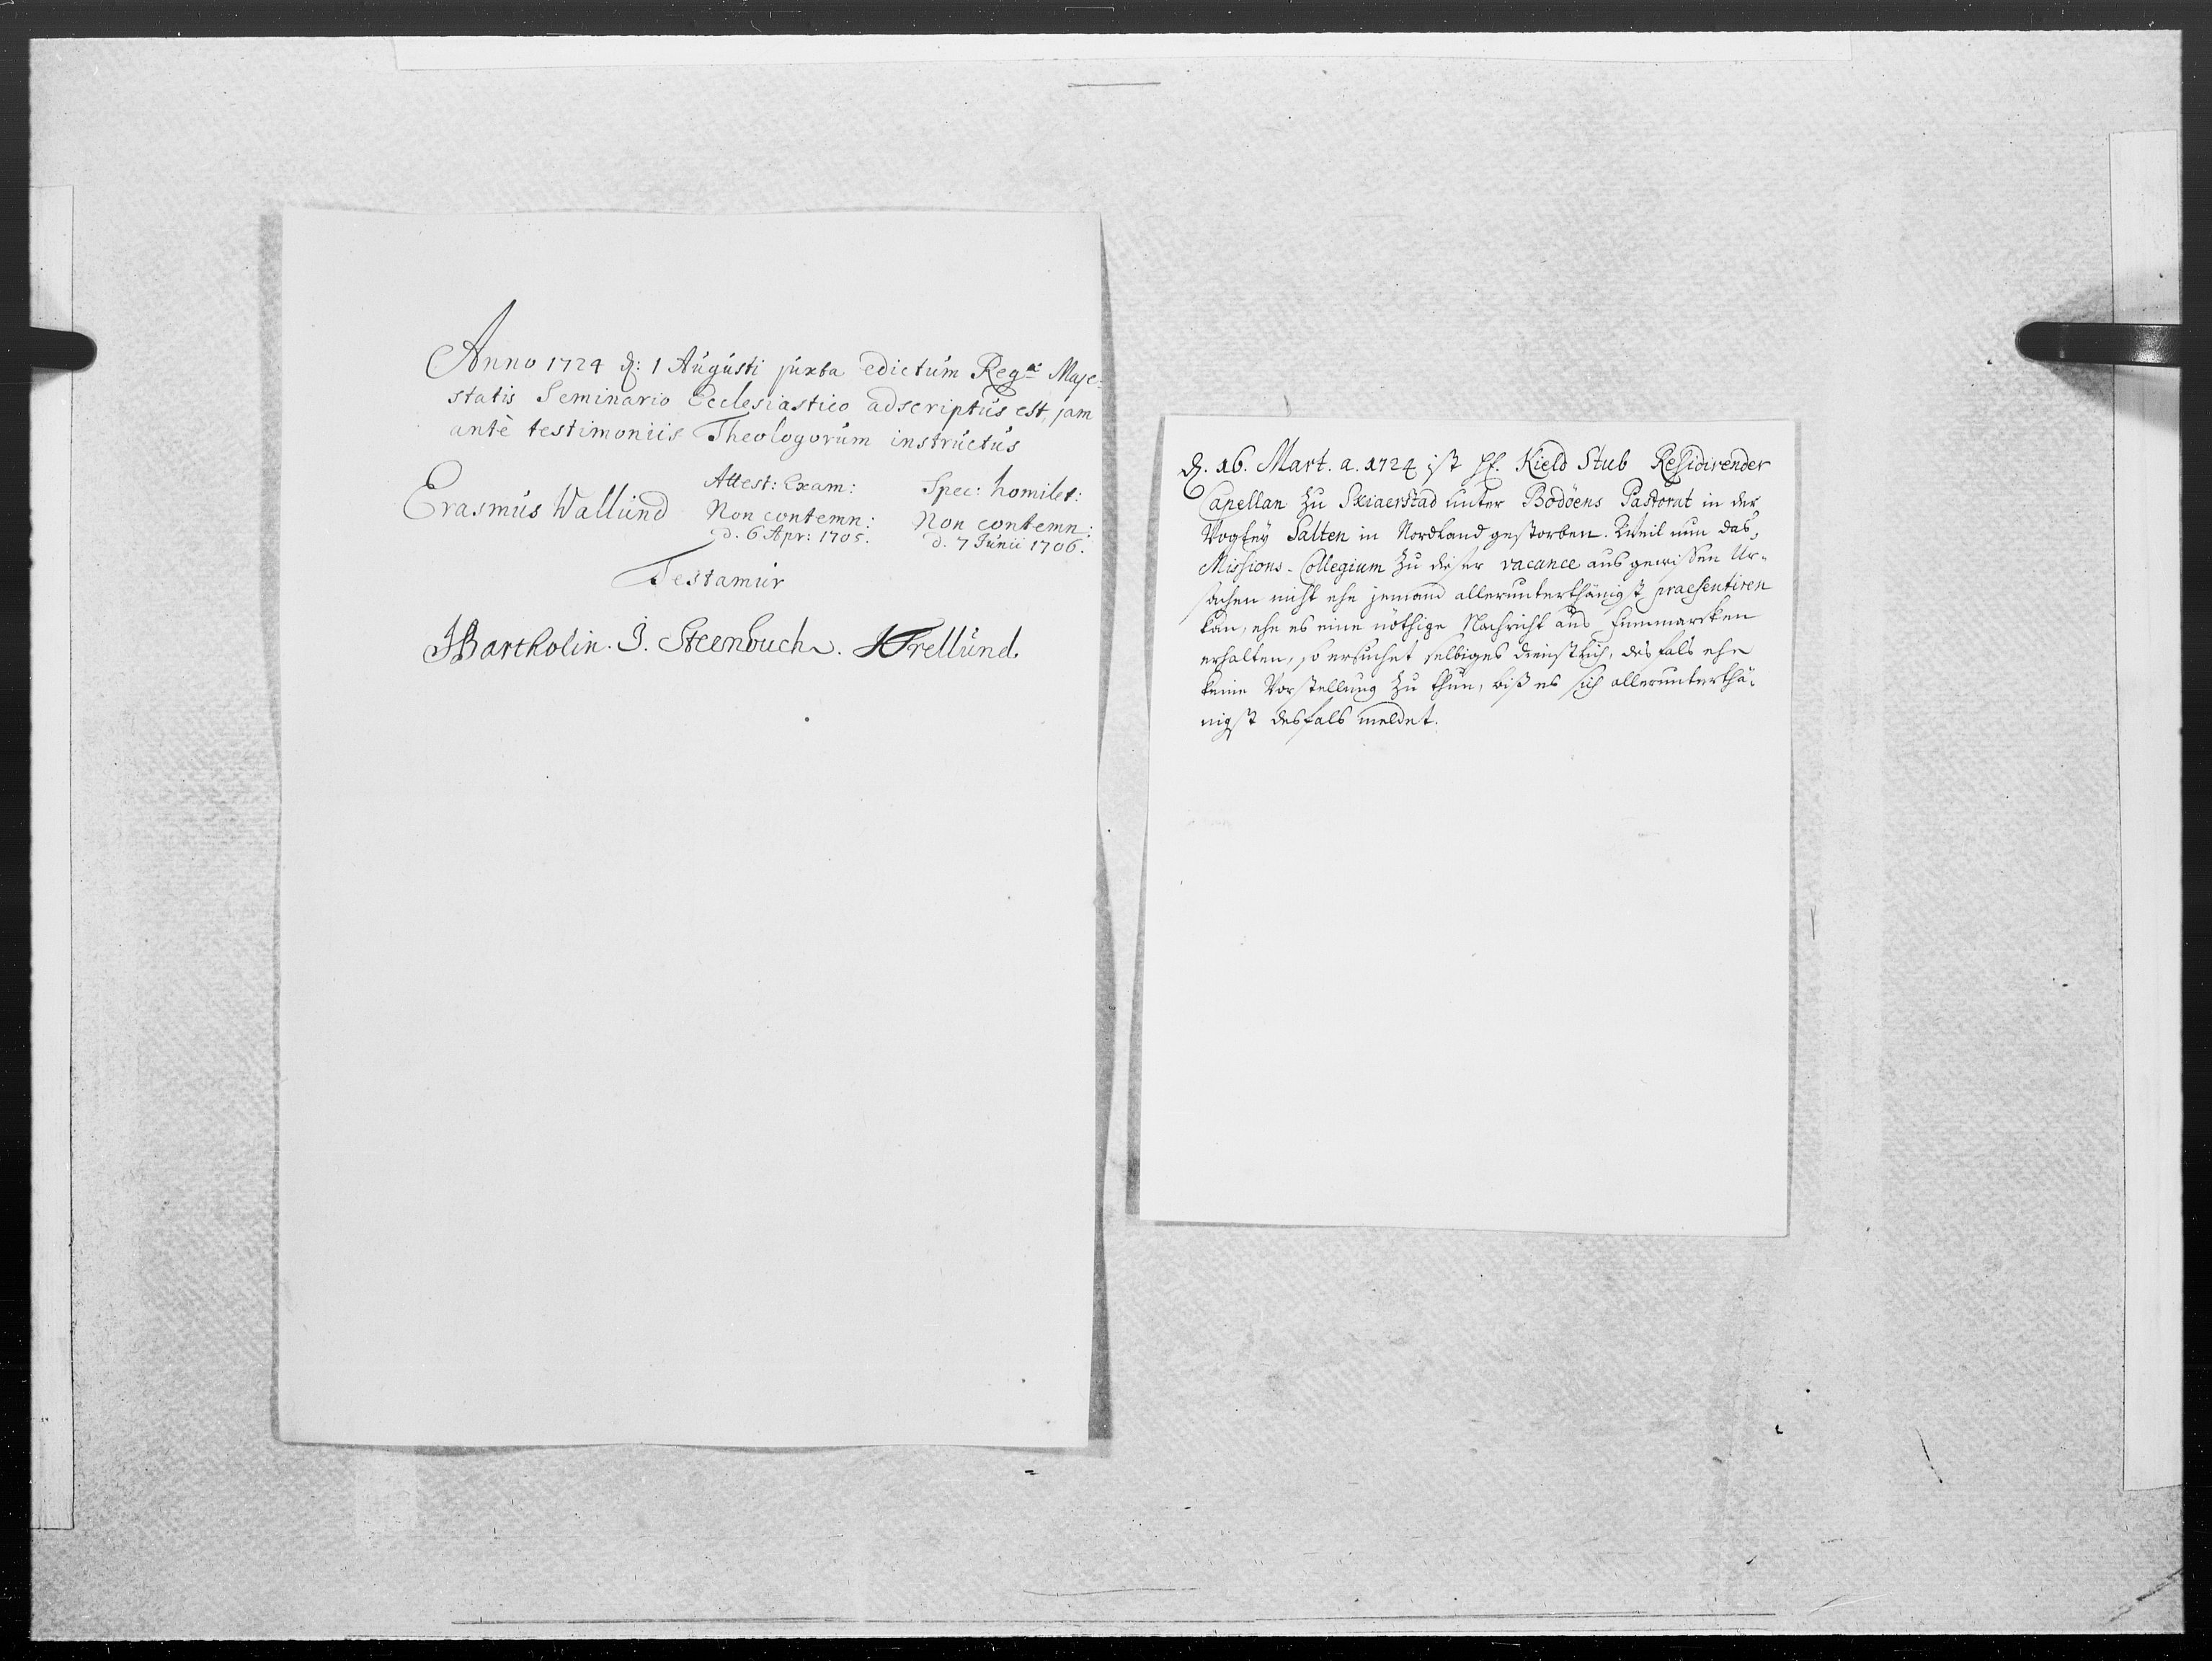 Anno 1724 d: 1 Augusti juxta edictum Reg.æ Maje-
statis Seminario Ecclesiastico adscriptus est, jam
antè testimoniis Theologorum instructus
Attest: Exam: Spec: homilet:
Erasmus Wallund Non contemn: Non contemn:
d. 6 Apr: 1705. d. 7 Junii 1706.
Testamur
HBartholin. J. Steenbuch. HTrellund.
d. 16. Mart. a. 1724 ist H. Kield Stub Residirender
Capellan zu Skiaerstad unter Bodöens Pastorat in der
Vogtey Salten in Nordland gestorben. Weil nun das
Missions-Collegium zu dieser vacance aus gewissen Ur-
sachen nicht ehe jemand allerunterthänigst praesentiren
kan, ehe es eine nöthige Nachricht aus Finmarcken
erhalten, so ersuchet selbiges dienstlich, desfals ehe
keine Vorstellung zu thun, biß es sich allerunterthä-
nigst desfals meldet.